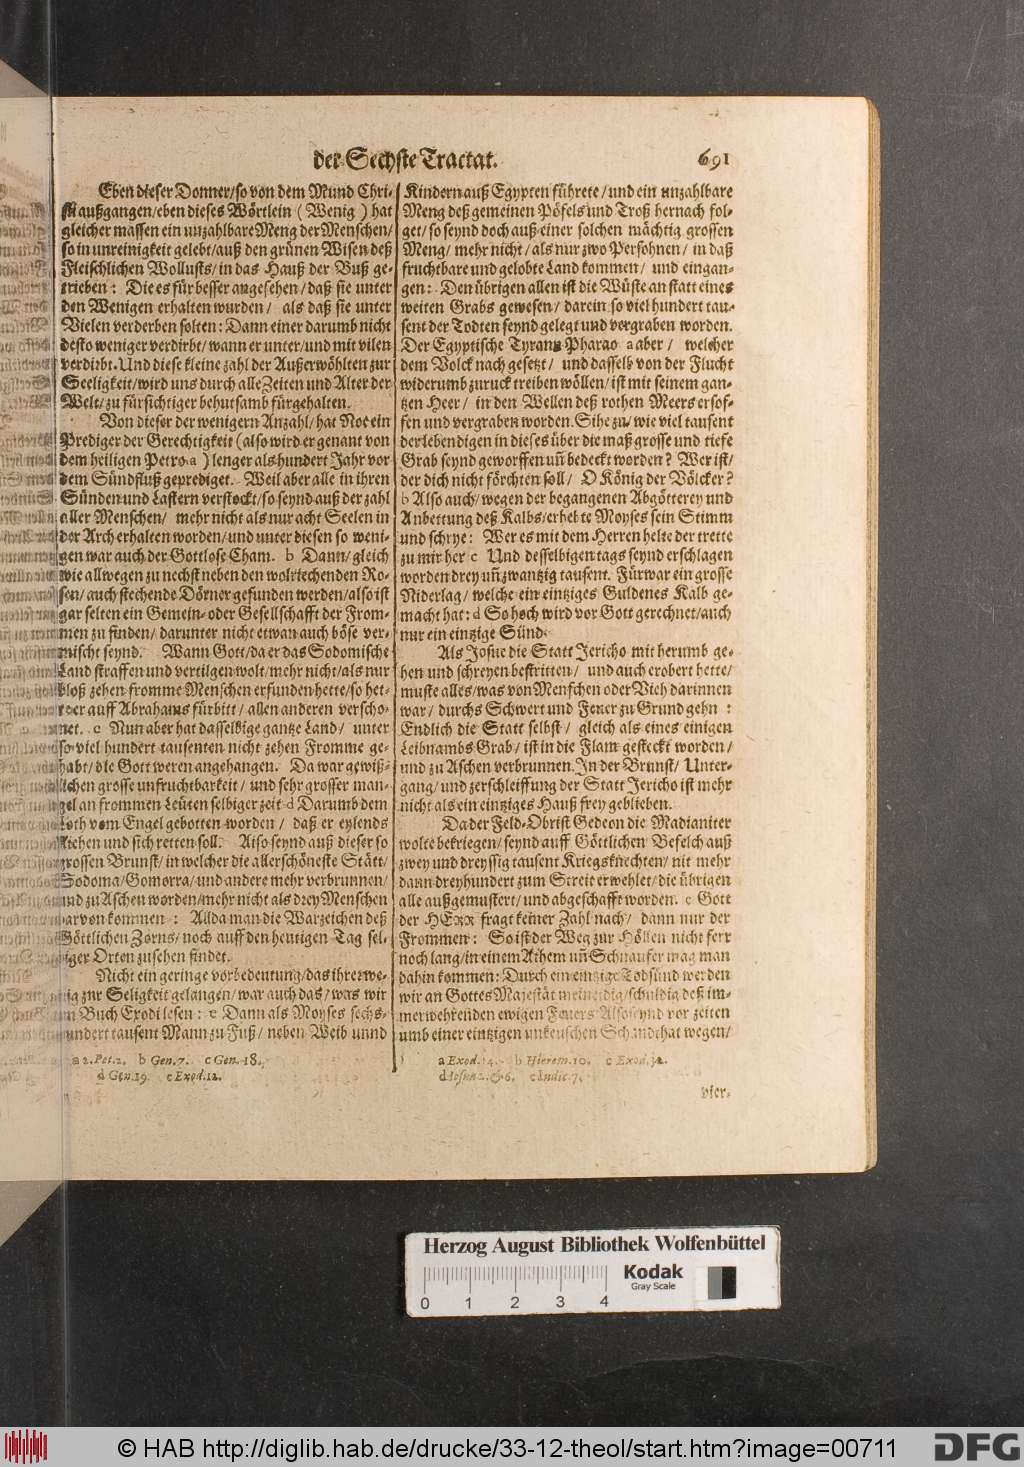 der Sechste Tractat. 691
Eben dieser Donner/so von dem Mund Chri-
sti außgangen/eben dieses Wörtlein (Wenig) hat
gleicher massen ein unzahlbare Meng der Menschen/
so in unreinigkeit gelebt/auß den grünen Wisen deß
Fleischlichen Wollusts/in das Hauß der Buß ge-
trieben: Die es für besser angesehen/daß sie unter
den Wenigen erhalten wurden/ als daß sie unter
Vielen verderben solten: Dann einer darumb nicht
desto weniger verdirbt/wann er unter/und mit vilen
verdirbt. Und diese kleine zahl der Außerwöhlten zur
Seeligkeit/wird uns durch alle Zeiten und Alter der
Welt/zu fürsichtiger behutsamb fürgehalten.
Von dieser der wenigern Anzahl/hat Noe ein
Prediger der Gerechtigkeit (also wird er genant von
dem heiligen Petro a) lenger als hundert Jahr vor
dem Sündfluß geprediget. Weil aber alle in ihren
Sünden und Lastern verstockt/so seynd auß der zahl
aller Menschen/ mehr nicht als nur acht Seelen in
der Arch erhalten worden/und unter diesen so weni-
gen war auch der Gottlose Cham. b Dann/gleich
wie allwegen zu nechst neben den wolriechenden Ro-
sen/auch stechende Dörner gefunden werden/also ist
gar selten ein Gemein- oder Gesellschafft der From-
men zu finden/ darunter nicht etwan auch böse ver-
mischt seynd. Wann Gott/da er das Sodomische
Land straffen und vertilgen wolt/mehr nicht/als nur
bloß zehen fromme Menschen erfunden hette/so het-
te er auff Abrahams fürbitt/allen anderen verscho-
net. c Nun aber hat dasselbige gantze Land/ unter
so viel hundert tausenten nicht zehen Fromme ge-
habt/die Gott weren angehangen. Da war gewiß-
lichen grosse unfruchtbarkeit/ und sehr grosser man-
gel an frommen Leuten selbiger zeit d Darumb dem
Loth vom Engel gebotten worden/ daß er eylends
fliehen und sich retten soll. Also seynd auß dieser so
grossen Brunst/in welcher die allerschöneste Stätt/
Sodoma/Gomorra/und andere mehr verbrunnen/
und zu Aschen worden/mehr nicht als drey Menschen
darvon kommen: Allda man die Warzeichen deß
Göttlichen Zorns/noch auff den heutigen Tag sel-
biger Orten zusehen findet.
Nicht ein geringe vorbedeutung/das ihrer we-
nig zur Seligkeit gelangen/war auch das/was wir
im Buch Exodi lesen: e Dann als Moyses sechs-
hundert tausent Mann zu Fuß/ neben Weib unnd
a 2. Pet. 2. b Gen. 7. c Gen. 18.
d Gen. 19. e Exod. 12.
Kindern auß Egypten führete/und ein unzahlbare
Meng deß gemeinen Pöfels und Troß hernach fol-
get/so seynd doch auß einer solchen mächtig grossen
Meng/ mehr nicht/als nur zwo Persohnen/ in daß
fruchtbare und gelobte Land kommen/ und eingan-
gen: Den übrigen allen ist die Wüste an statt eines
weiten Grabs gewesen/darein so viel hundert tau-
sent der Todten seynd gelegt und vergraben worden.
Der Egyptische Tyrann Pharao a aber/ welcher
dem Volck nach gesetzt/ und dasselb von der Flucht
widerumb zuruck treiben wöllen/ist mit seinem gan-
tzen Heer/ in den Wellen deß rothen Meers ersof-
fen und vergraben worden. Sihe zu/wie viel tausent
der lebendigen in dieses über die maß grosse und tiefe
Grab seynd geworffen uñ bedeckt worden? Wer ist/
der dich nicht förchten soll/ O König der Völcker?
b Also auch/wegen der begangenen Abgötterey und
Anbettung deß Kalbs/erhebte Moyses sein Stimm
und schrye: Wer es mit dem Herren helte der trette
zu mir her c Und desselbigen tags seynd erschlagen
worden drey uñ zwantzig tausent. Fürwar ein grosse
Niderlag/welche ein eintziges Guldenes Kalb ge-
macht hat: d So hoch wird vor Gott gerechnet/auch
nur ein eintzige Sünd.
Als Josue die Statt Jericho mit herumb ge-
hen und schreyen bestritten/ und auch erobert hette/
muste alles/was von Menschen oder Vieh darinnen
war/durchs Schwert und Feuer zu Grund gehn:
Endlich die Statt selbst/ gleich als eines einigen
Leibnambs Grab/ist in die Flam gesteckt worden/
und zu Aschen verbrunnen. In der Brunst/Unter-
gang/und zerschleiffung der Statt Jericho ist mehr
nicht als ein eintziges Hauß frey geblieben.
Da der Feld-Obrist Gedeon die Madianiter
wolte bekriegen/seynd auff Göttlichen Befelch auß
zwey und dreyssig tausent Kriegsknechten/ nit mehr
dann dreyhundert zum Streit erwehlet/die übrigen
alle außgemustert/und abgeschafft worden. e Gott
der HErr fragt keiner Zahl nach/ dann nur der
Frommen: So ist der Weg zur Höllen nicht ferr
noch lang/in einem Athem uñ Schnaufer mag man
dahin kommen: Durch ein eintzige Todsünd werden
wir an Gottes Majestät meineidig/schuldig deß im-
merwehrenden ewigen Feuers Also seynd vor zeiten
umb einer eintzigen unkeuschen Schandthat wegen/
a Exod. 14. b Hierem. 10. c Exod. 32.
d Josua 2. & 6. e Judic. 7.
vier-
Herzog August Bibliothek Wolfenbüttel
Kodak
Gray Scale
0 1 2 3 4
© HAB http://diglib.hab.de/drucke/33-12-theol/start.htm?image=00711
DFG